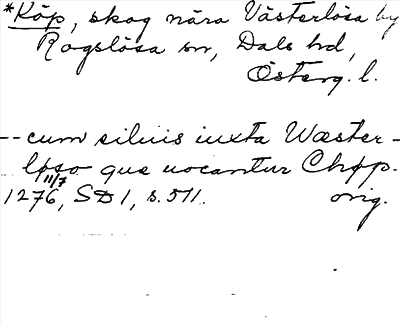 *Köp, skog nära Västerlösa by
Rogslösa sn, Dals hd,
Österg. l.
-- cum siluis iuxta Wæster-
løso que uocantur Chøp.
1276 11/7, SD 1, s. 511. orig.